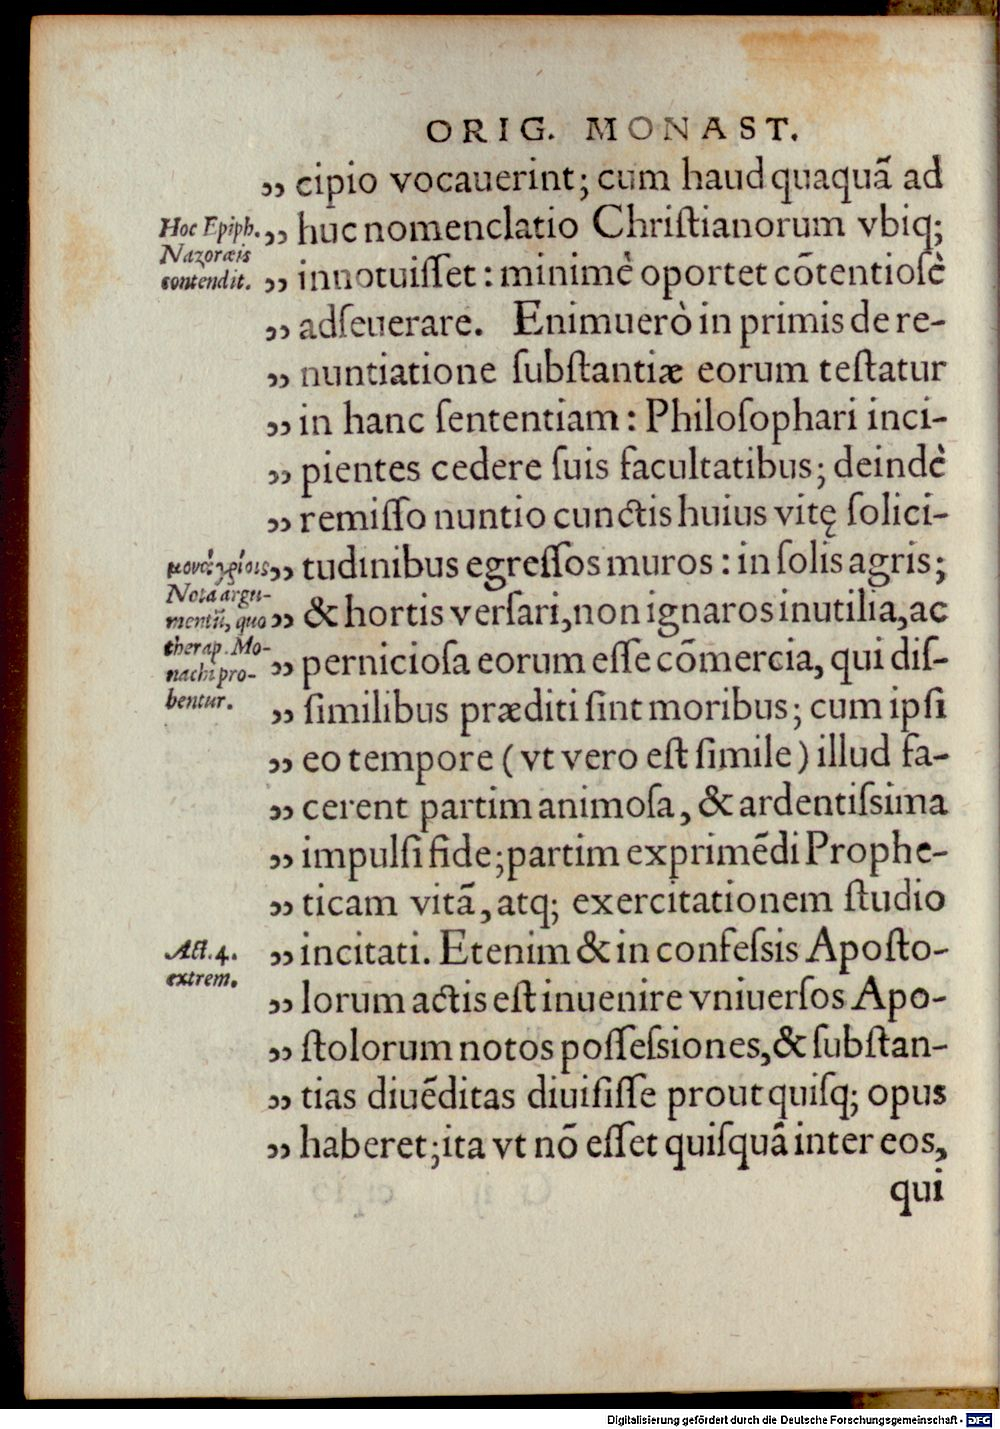 ORIG. MONAST.
„ cipio vocauerint; cum haud quaquã ad
Hoc Epiph. „ huc nomenclatio Chriſtianorum vbiq;
Nazoræis
contendit. „ innotuiſſet : minimè oportet cõtentioſè
„ adſeuerare. Enimuerò in primis de re-
„ nuntiatione ſubſtantiæ eorum teſtatur
„ in hanc ſententiam : Philoſophari inci-
„ pientes cedere ſuis facultatibus; deindè
„ remiſſo nuntio cunctis huius vitę ſolici-
„ tudinibus egreſſos muros : in ſolis agris;
Nota argu-
mentũ, quo „ & hortis verſari, non ignaros inutilia, ac
therap. Mo-
nachi pro- „ pernicioſa eorum eſſe cõmercia, qui diſ-
bentur.
„ ſimilibus præditi ſint moribus; cum ipſi
„ eo tempore ( vt vero eſt ſimile ) illud fa-
„ cerent partim animoſa, & ardentiſsima
„ impulſi fide; partim exprimẽdi Prophe-
„ ticam vitã, atq; exercitationem ſtudio
Act. 4. „ incitati. Etenim & in confeſsis Apoſto-
extrem.
„ lorum actis eſt inuenire vniuerſos Apo-
„ ſtolorum notos poſſeſsiones, & ſubſtan-
„ tias diuẽditas diuiſiſſe prout quiſq; opus
„ haberet; ita vt nõ eſſet quiſquã inter eos,
qui
Digitalisierung gefördert durch die Deutsche Forschungsgemeinschaft - DFG